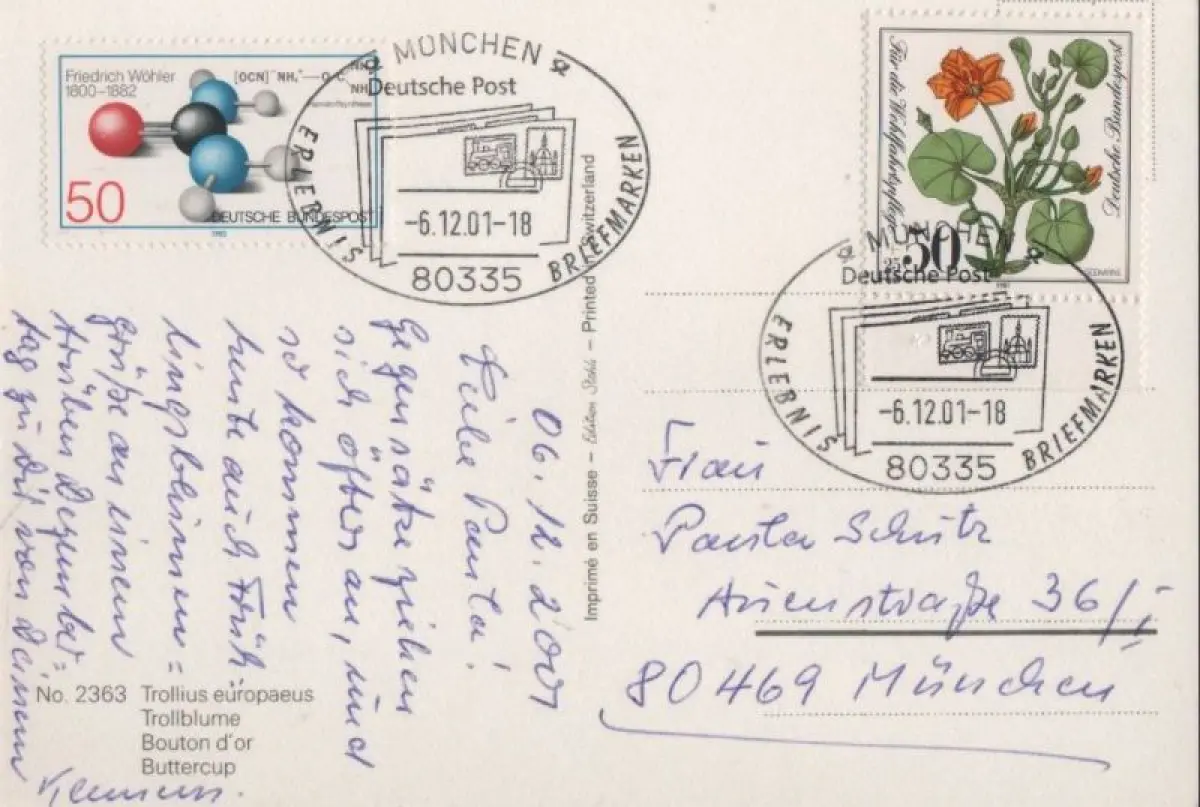 Friedrich Wöhler
1800–1882
[OCN]⁻ NH₄⁺ — O C NH NH
50
DEUTSCHE BUNDESPOST
1982
MÜNCHEN
Deutsche Post
-6.12.01-18
80335
ERLEBNIS BRIEFMARKEN
Für die Wohlfahrtspflege
Deutsche Bundespost
50
25
SEEKANNE
1981
MÜNCHEN
Deutsche Post
-6.12.01-18
80335
ERLEBNIS BRIEFMARKEN
06.12.2001
Liebe Paula!
Gegensätze ziehen
sich öfters an, und
so kommen
heute auch Früh-
lingsblumen =
grüße an einem
trüben Dezember=
tag zu Dir von Deinem
Klemens.
No. 2363 Trollius europaeus
Trollblume
Bouton d'or
Buttercup
Imprimé en Suisse – Edition Stehli – Printed in Switzerland
Frau
Paula Schütz
Auenstraße 36/I
80469 München